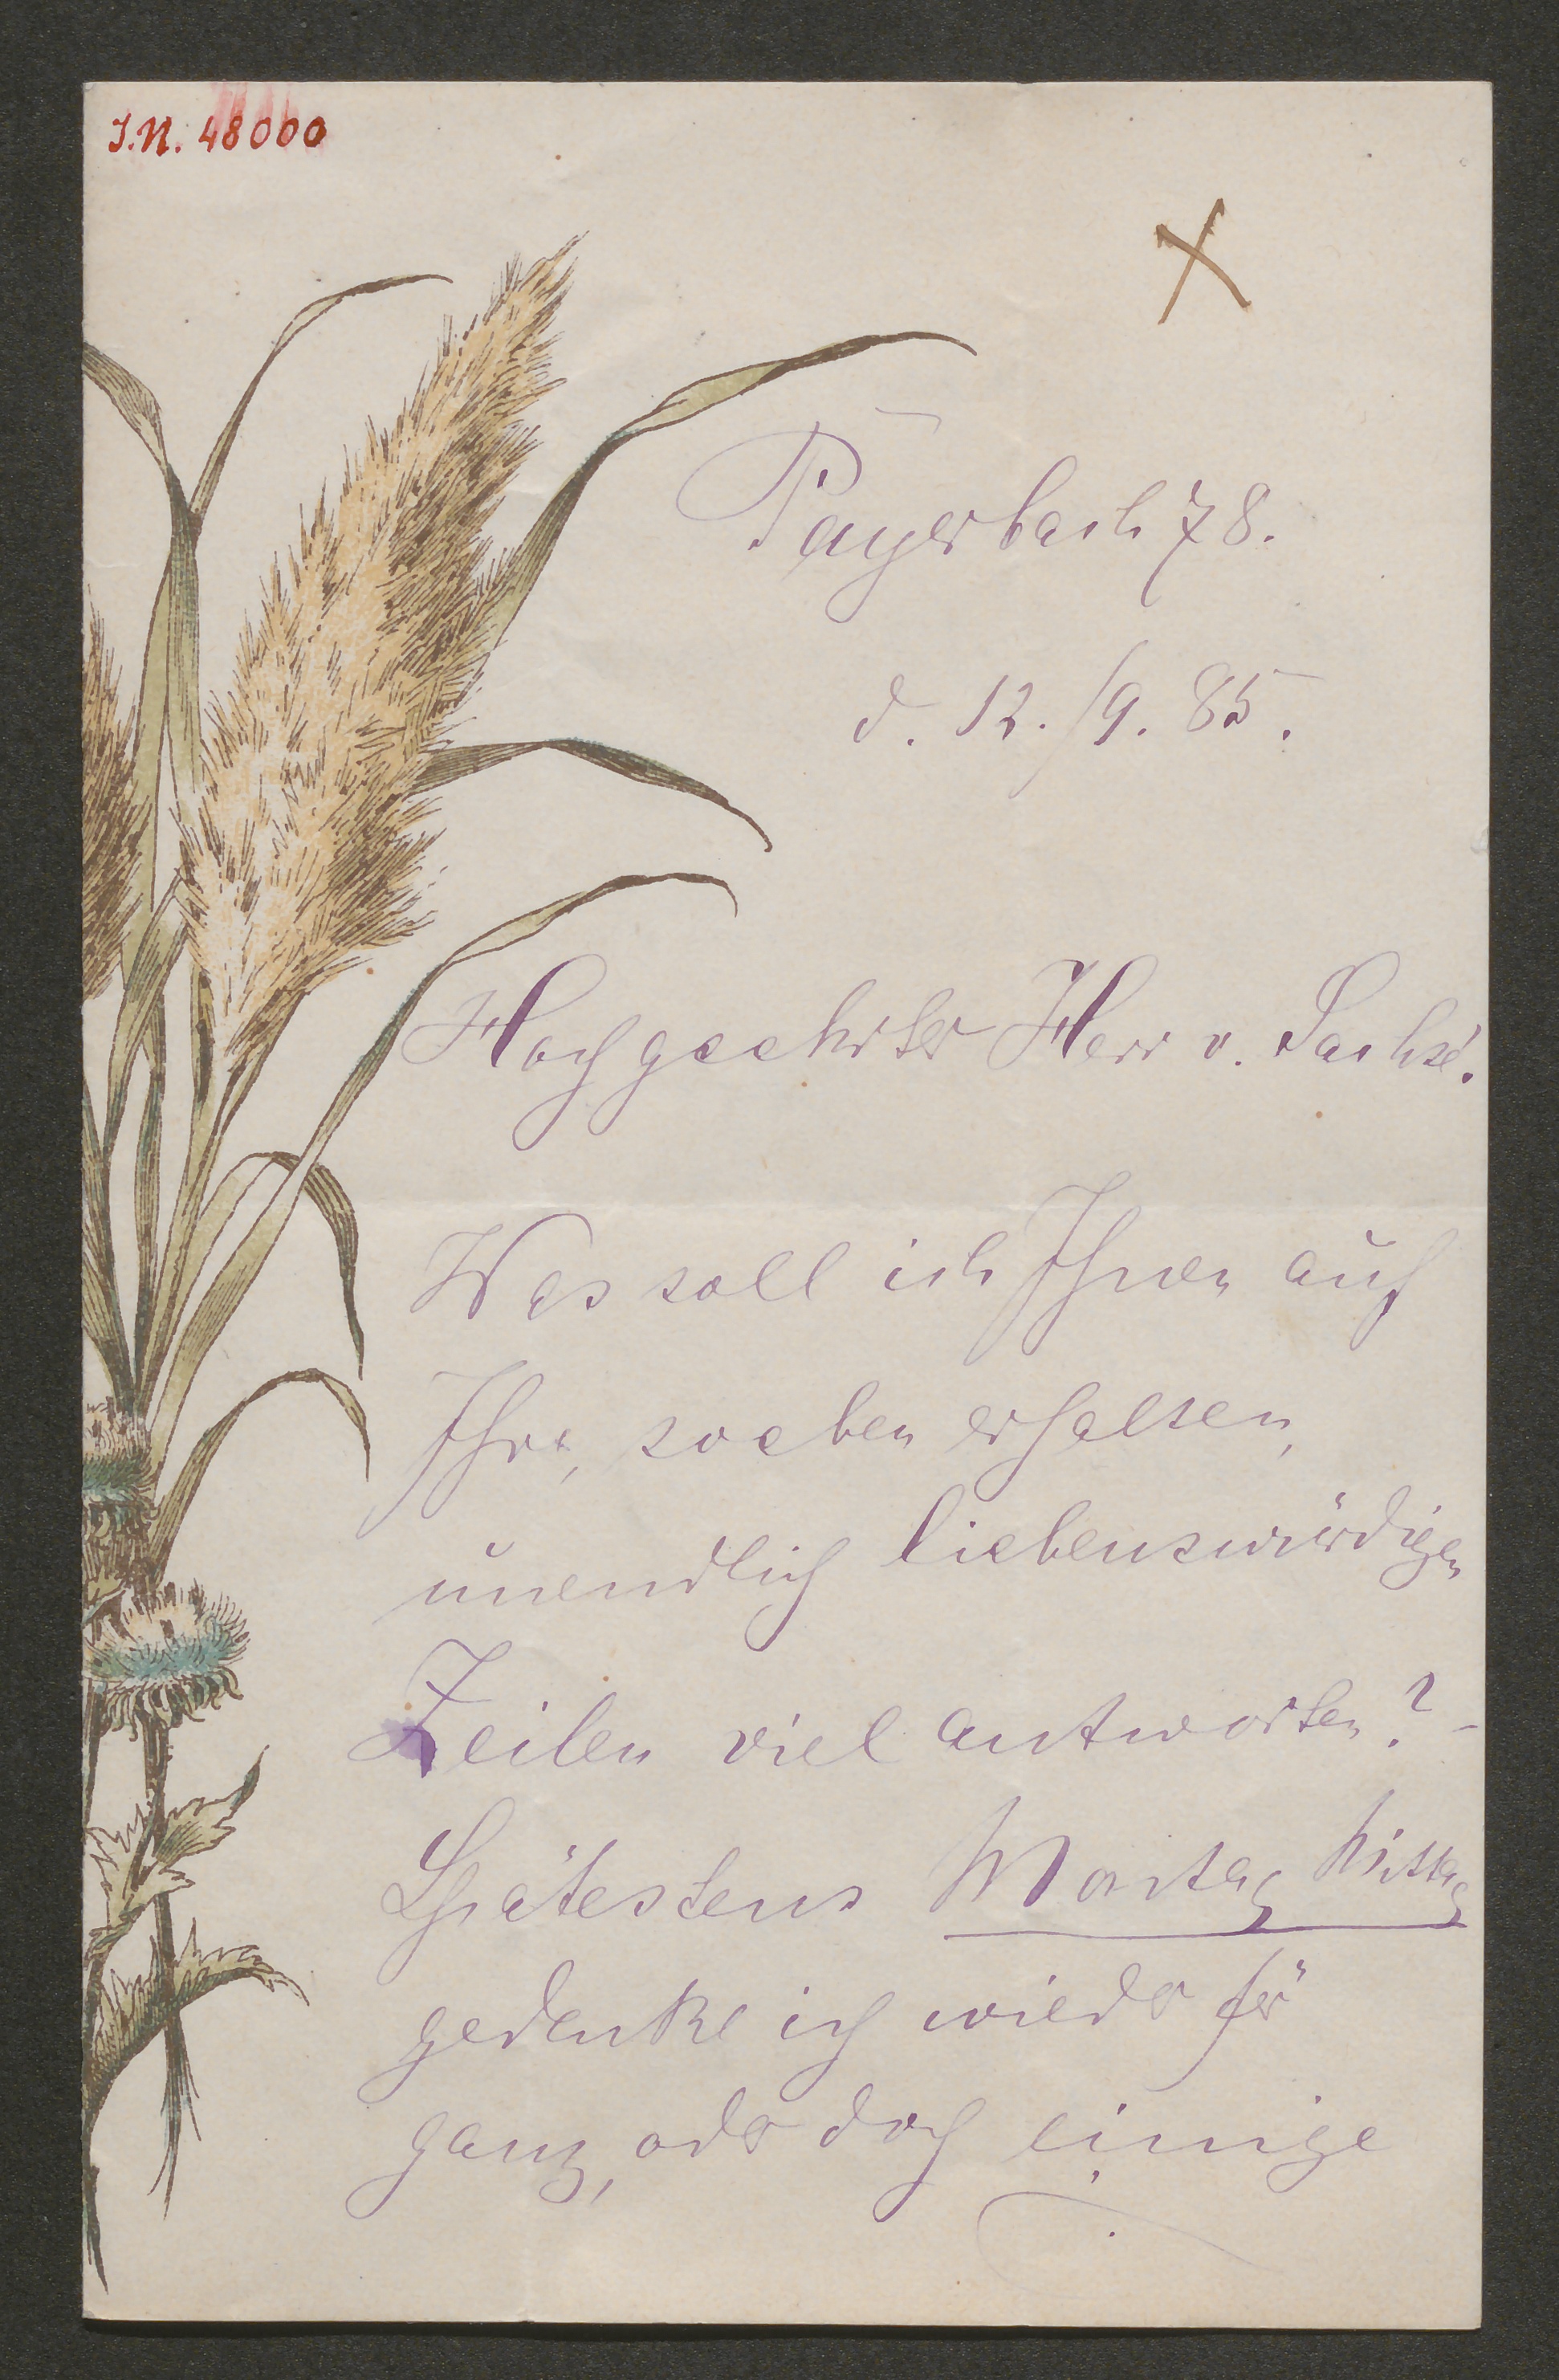 I.N. 48000
Payerbach 78.
d. 12./9. 85.
Hochgeehrter Herr v. Sachsé.
Was soll ich Ihnen auf
Ihre, soeben erhalten,
unendlich liebenswürdigen
Zeilen viel antworten? -
Spätestens Montag Mittag
gedenke ich wieder für
ganz, oder doch einige